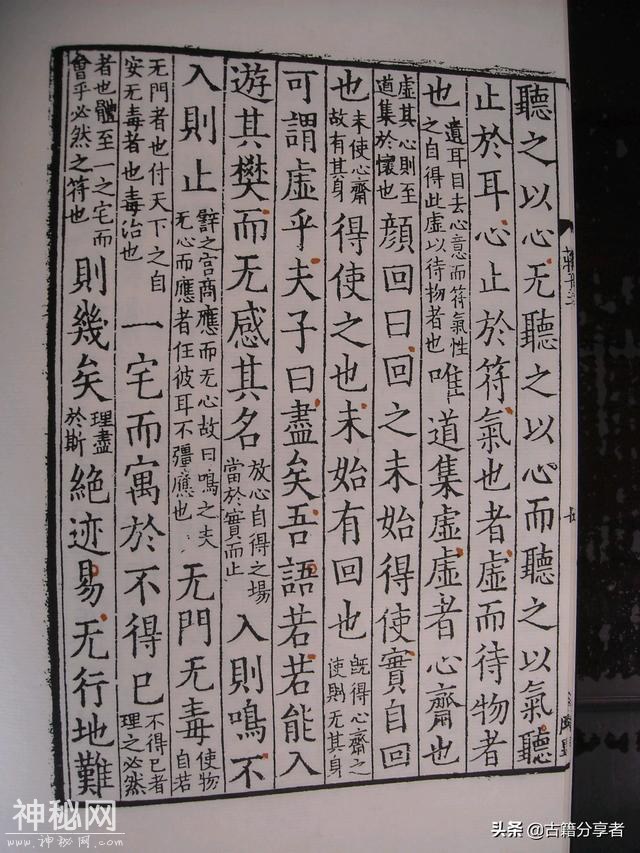 聽之以心无聽之以心而聽之以氣聽
止於耳心止於符氣也者虛而待物者
也遺耳目去心意而符氣性之自得此虛以待物者也唯道集虛虛者心齋也
虛其心則至道集於懷也顏回曰回之未始得使實自回
也未使心齋故有其身得使之也未始有回也旣得心齋之使則无其身
可謂虛乎夫子曰盡矣吾語若若能入
遊其樊而无感其名放心自得之場當於實而止入則鳴不
入則止譬之宫商應而无心故曰鳴之夫无心而應者任彼耳不彊應也无門无毒使物自若
无門者也付天下之自安无毒者也毒治也一宅而寓於不得已不得已者理之必然
者也體至一之宅而會乎必然之符也則幾矣理盡於斯絕迹易无行地難
神秘网
www.神秘网.com
头条 @古籍分享者